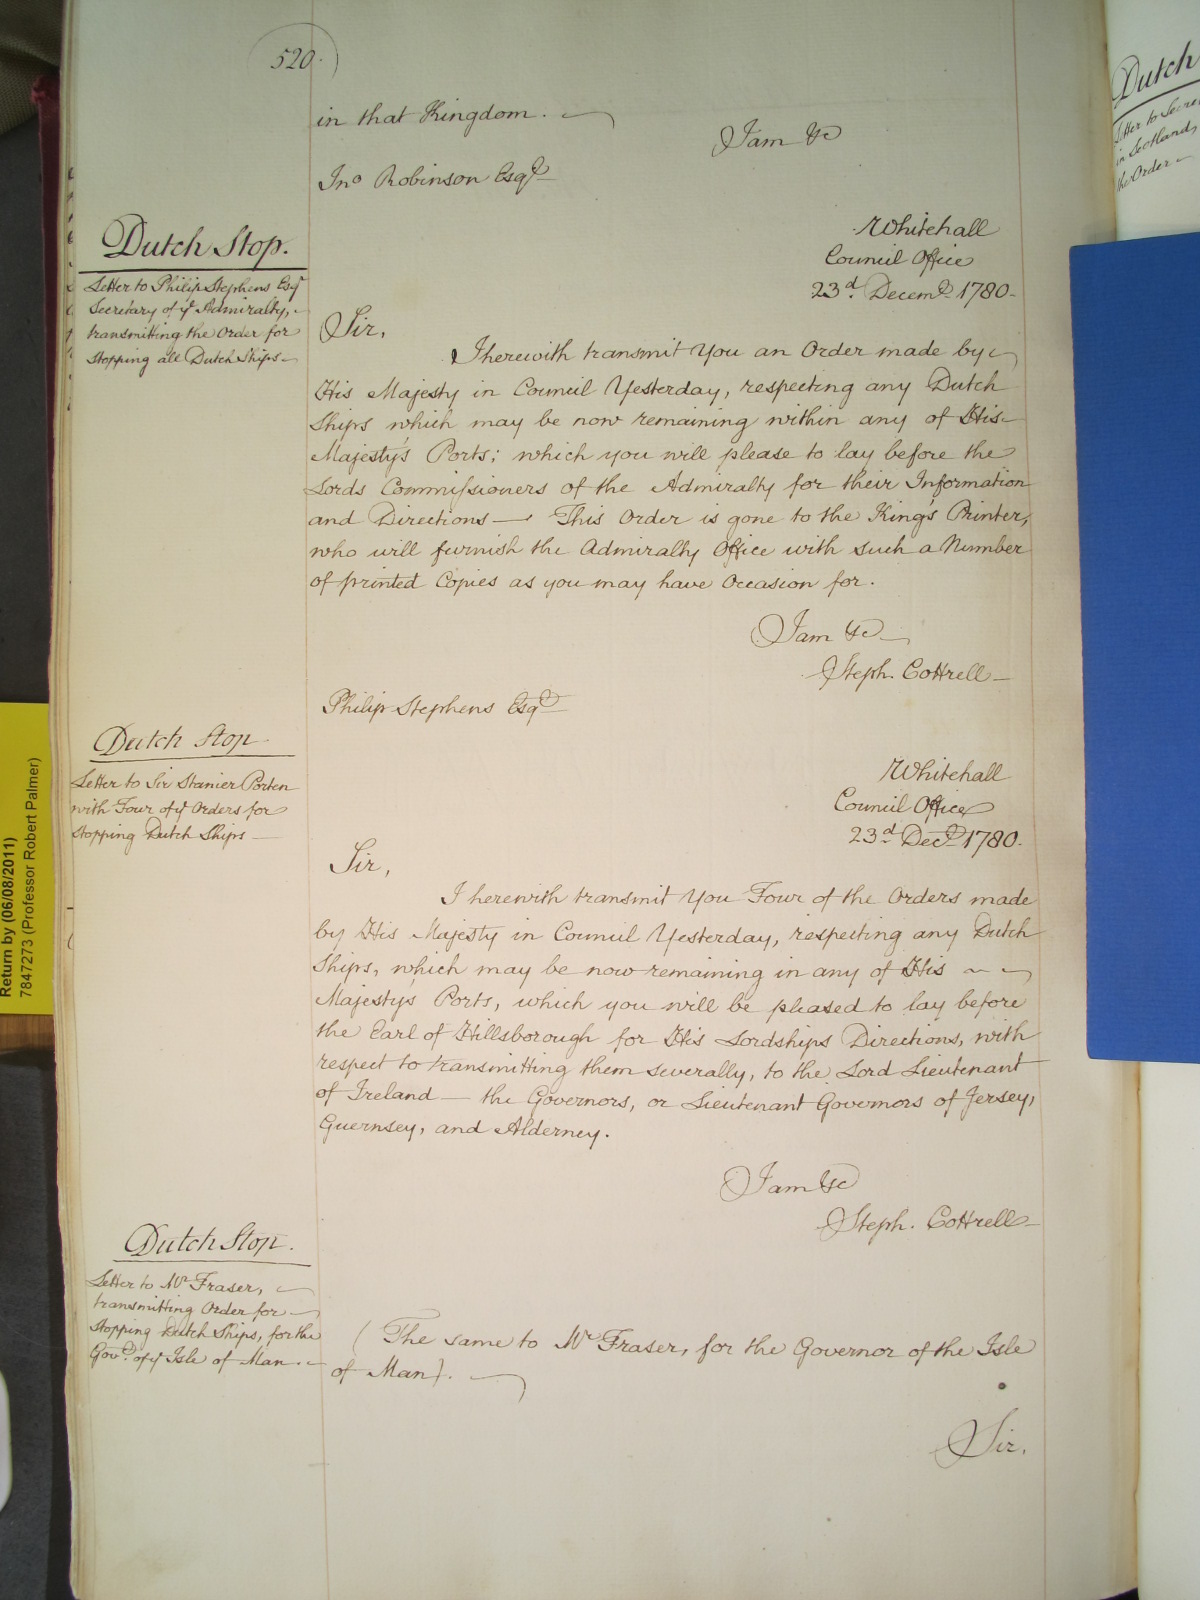 520.
in that Kingdom.
I am &c
Jno Robinson Esqr
Dutch Stop.
Letter to Philip Stephens Esqr
Secretary of ye Admiralty,
transmitting the Order for
Stopping all Dutch Ships
Whitehall
Council Office
23d. Decemr. 1780.
Sir,
I herewith transmit You an Order made by
His Majesty in Council Yesterday, respecting any Dutch
Ships which may be now remaining within any of His
Majesty's Ports; which you will please to lay before the
Lords Commissioners of the Admiralty for their Information
and Directions — This Order is gone to the King's Printer,
who will furnish the Admiralty Office with such a Number
of printed Copies as you may have Occasion for.
I am &c
Steph. Cottrell
Philip Stephens Esqr
Dutch Stop
Letter to Sir Stanier Porten
with Four of ye Orders for
Stopping Dutch Ships
Whitehall
Council Office
23d. Decr. 1780.
Sir,
I herewith transmit You Four of the Orders made
by His Majesty in Council Yesterday, respecting any Dutch
Ships, which may be now remaining in any of His
Majesty's Ports, which you will be pleased to lay before
the Earl of Hillsborough for His Lordships Directions, with
respect to transmitting them severally, to the Lord Lieutenant
of Ireland — the Governors, or Lieutenant Governors of Jersey,
Guernsey, and Alderney.
I am &c
Steph. Cottrell
Dutch Stop.
Letter to Mr Fraser,
transmitting Order for
Stopping Dutch Ships, for the
Govr. of ye Isle of Man.
(The same to Mr Fraser, for the Governor of the Isle
of Man).
Sir,
Dutch
Letter to
in Scotland,
the Order
Return by (06/08/2011)
7847273 (Professor Robert Palmer)